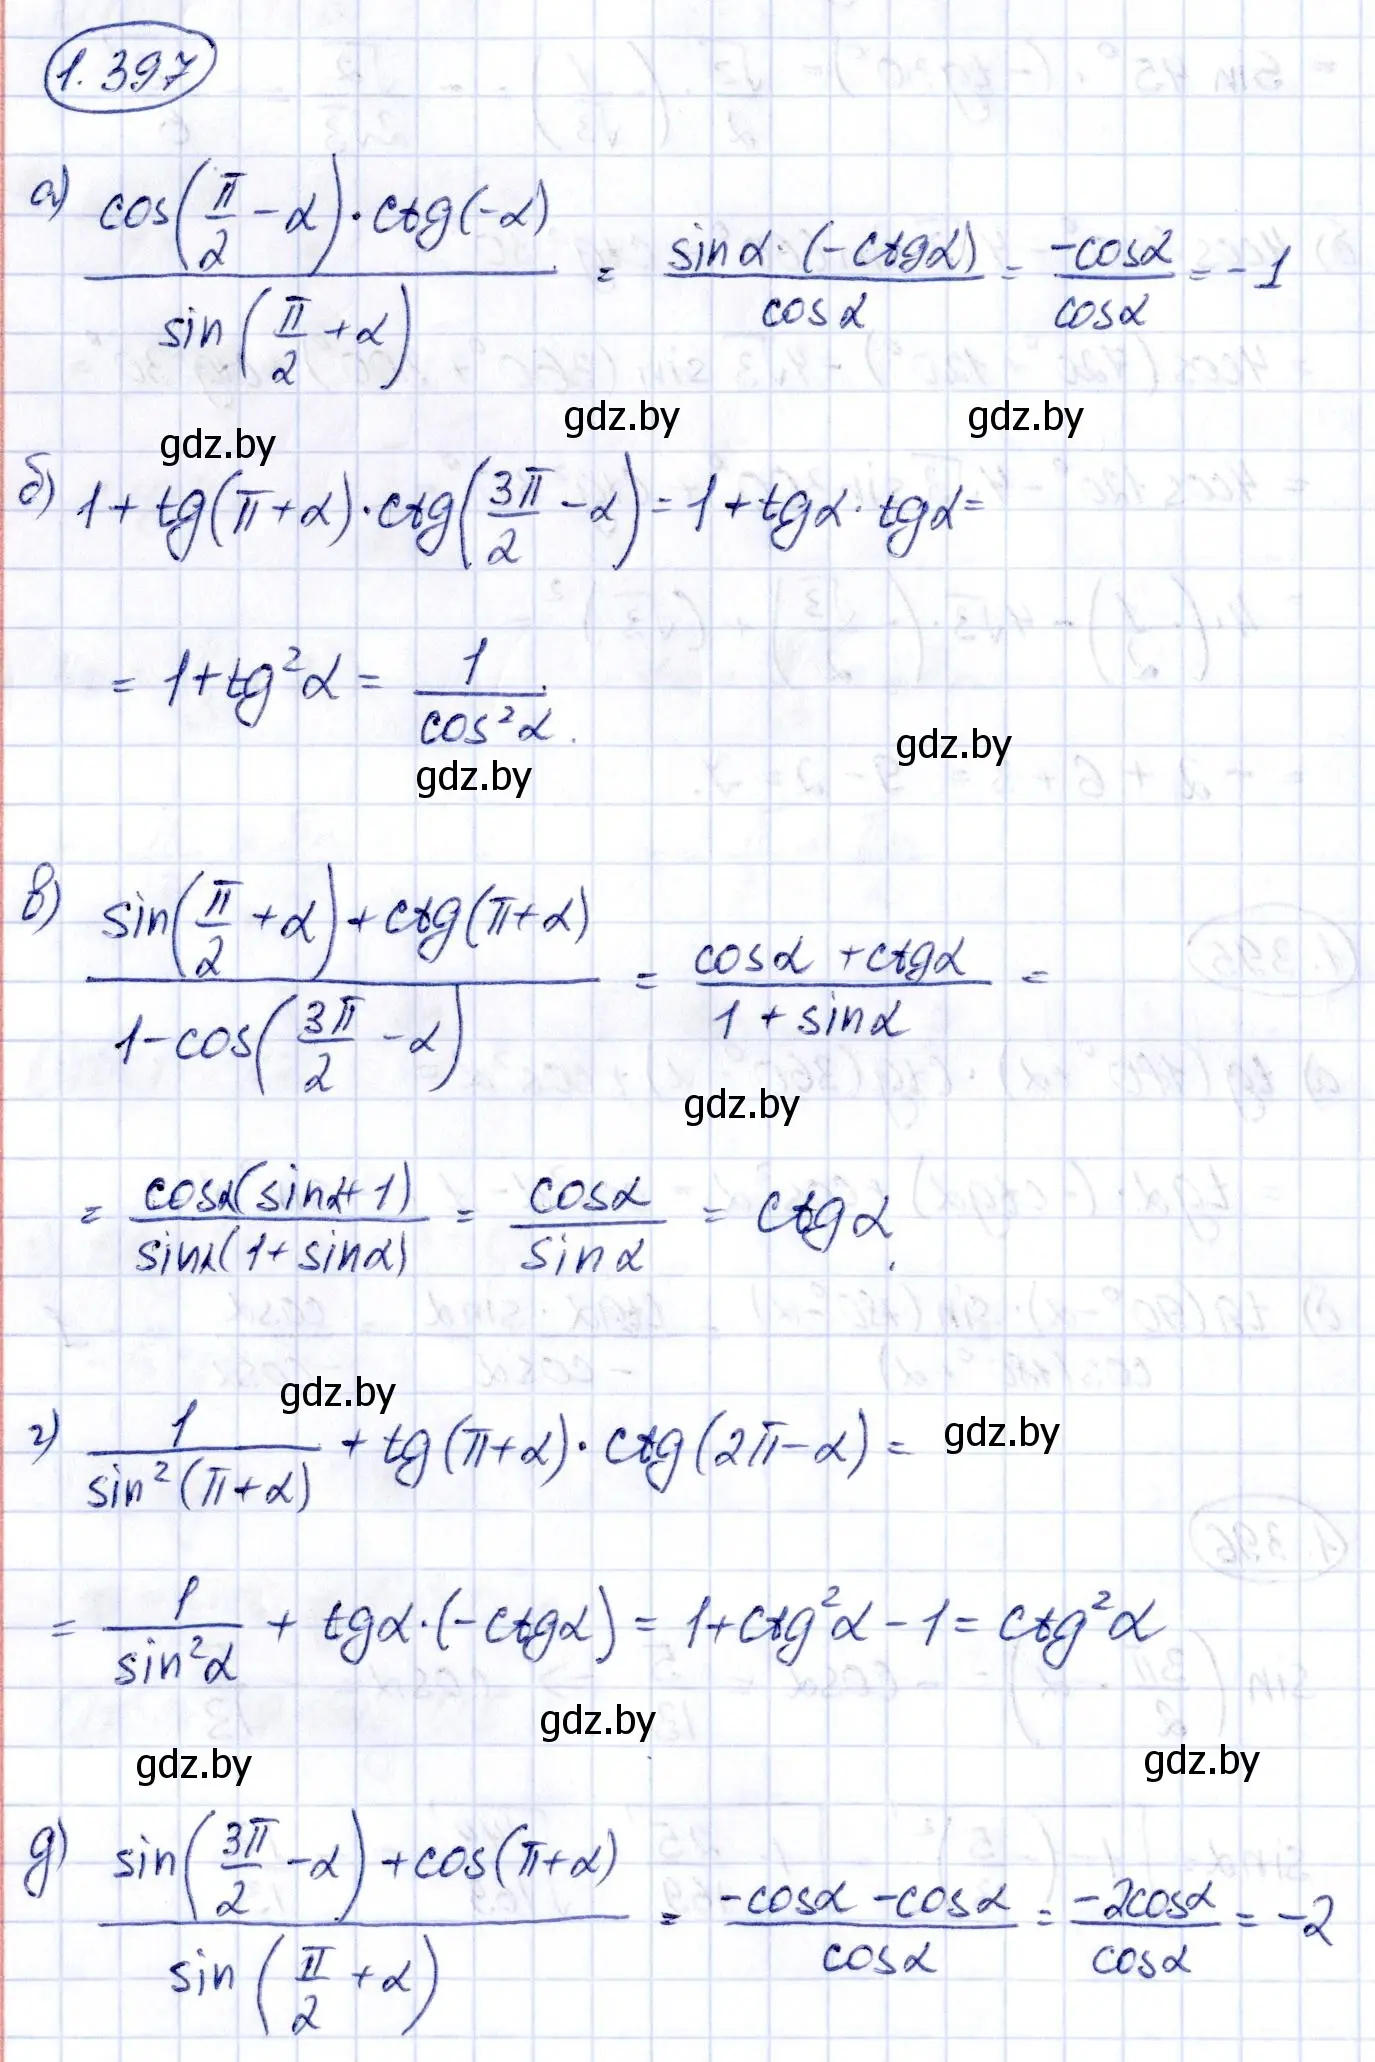 1.397
а) cos(π/2 − α) · ctg(−α) / sin(π/2 + α) = sinα · (−ctgα) / cosα = −cosα / cosα = −1
gdz.by gdz.by
gdz.by
б) 1 + tg(π + α) · ctg(3π/2 − α) = 1 + tgα · tgα =
= 1 + tg²α = 1 / cos²α.
gdz.by
gdz.by
в) sin(π/2 + α) + ctg(π + α) / 1 − cos(3π/2 − α) = cosα + ctgα / 1 + sinα =
gdz.by
= cosα(sinα + 1) / sinα(1 + sinα) = cosα / sinα = ctgα.
gdz.by
г) 1 / sin²(π + α) + tg(π + α) · ctg(2π − α) =
gdz.by
= 1 / sin²α + tgα · (−ctgα) = 1 + ctg²α − 1 = ctg²α
gdz.by
gdz.by gdz.by
д) sin(3π/2 − α) + cos(π + α) / sin(π/2 + α) = −cosα − cosα / cosα = −2cosα / cosα = −2